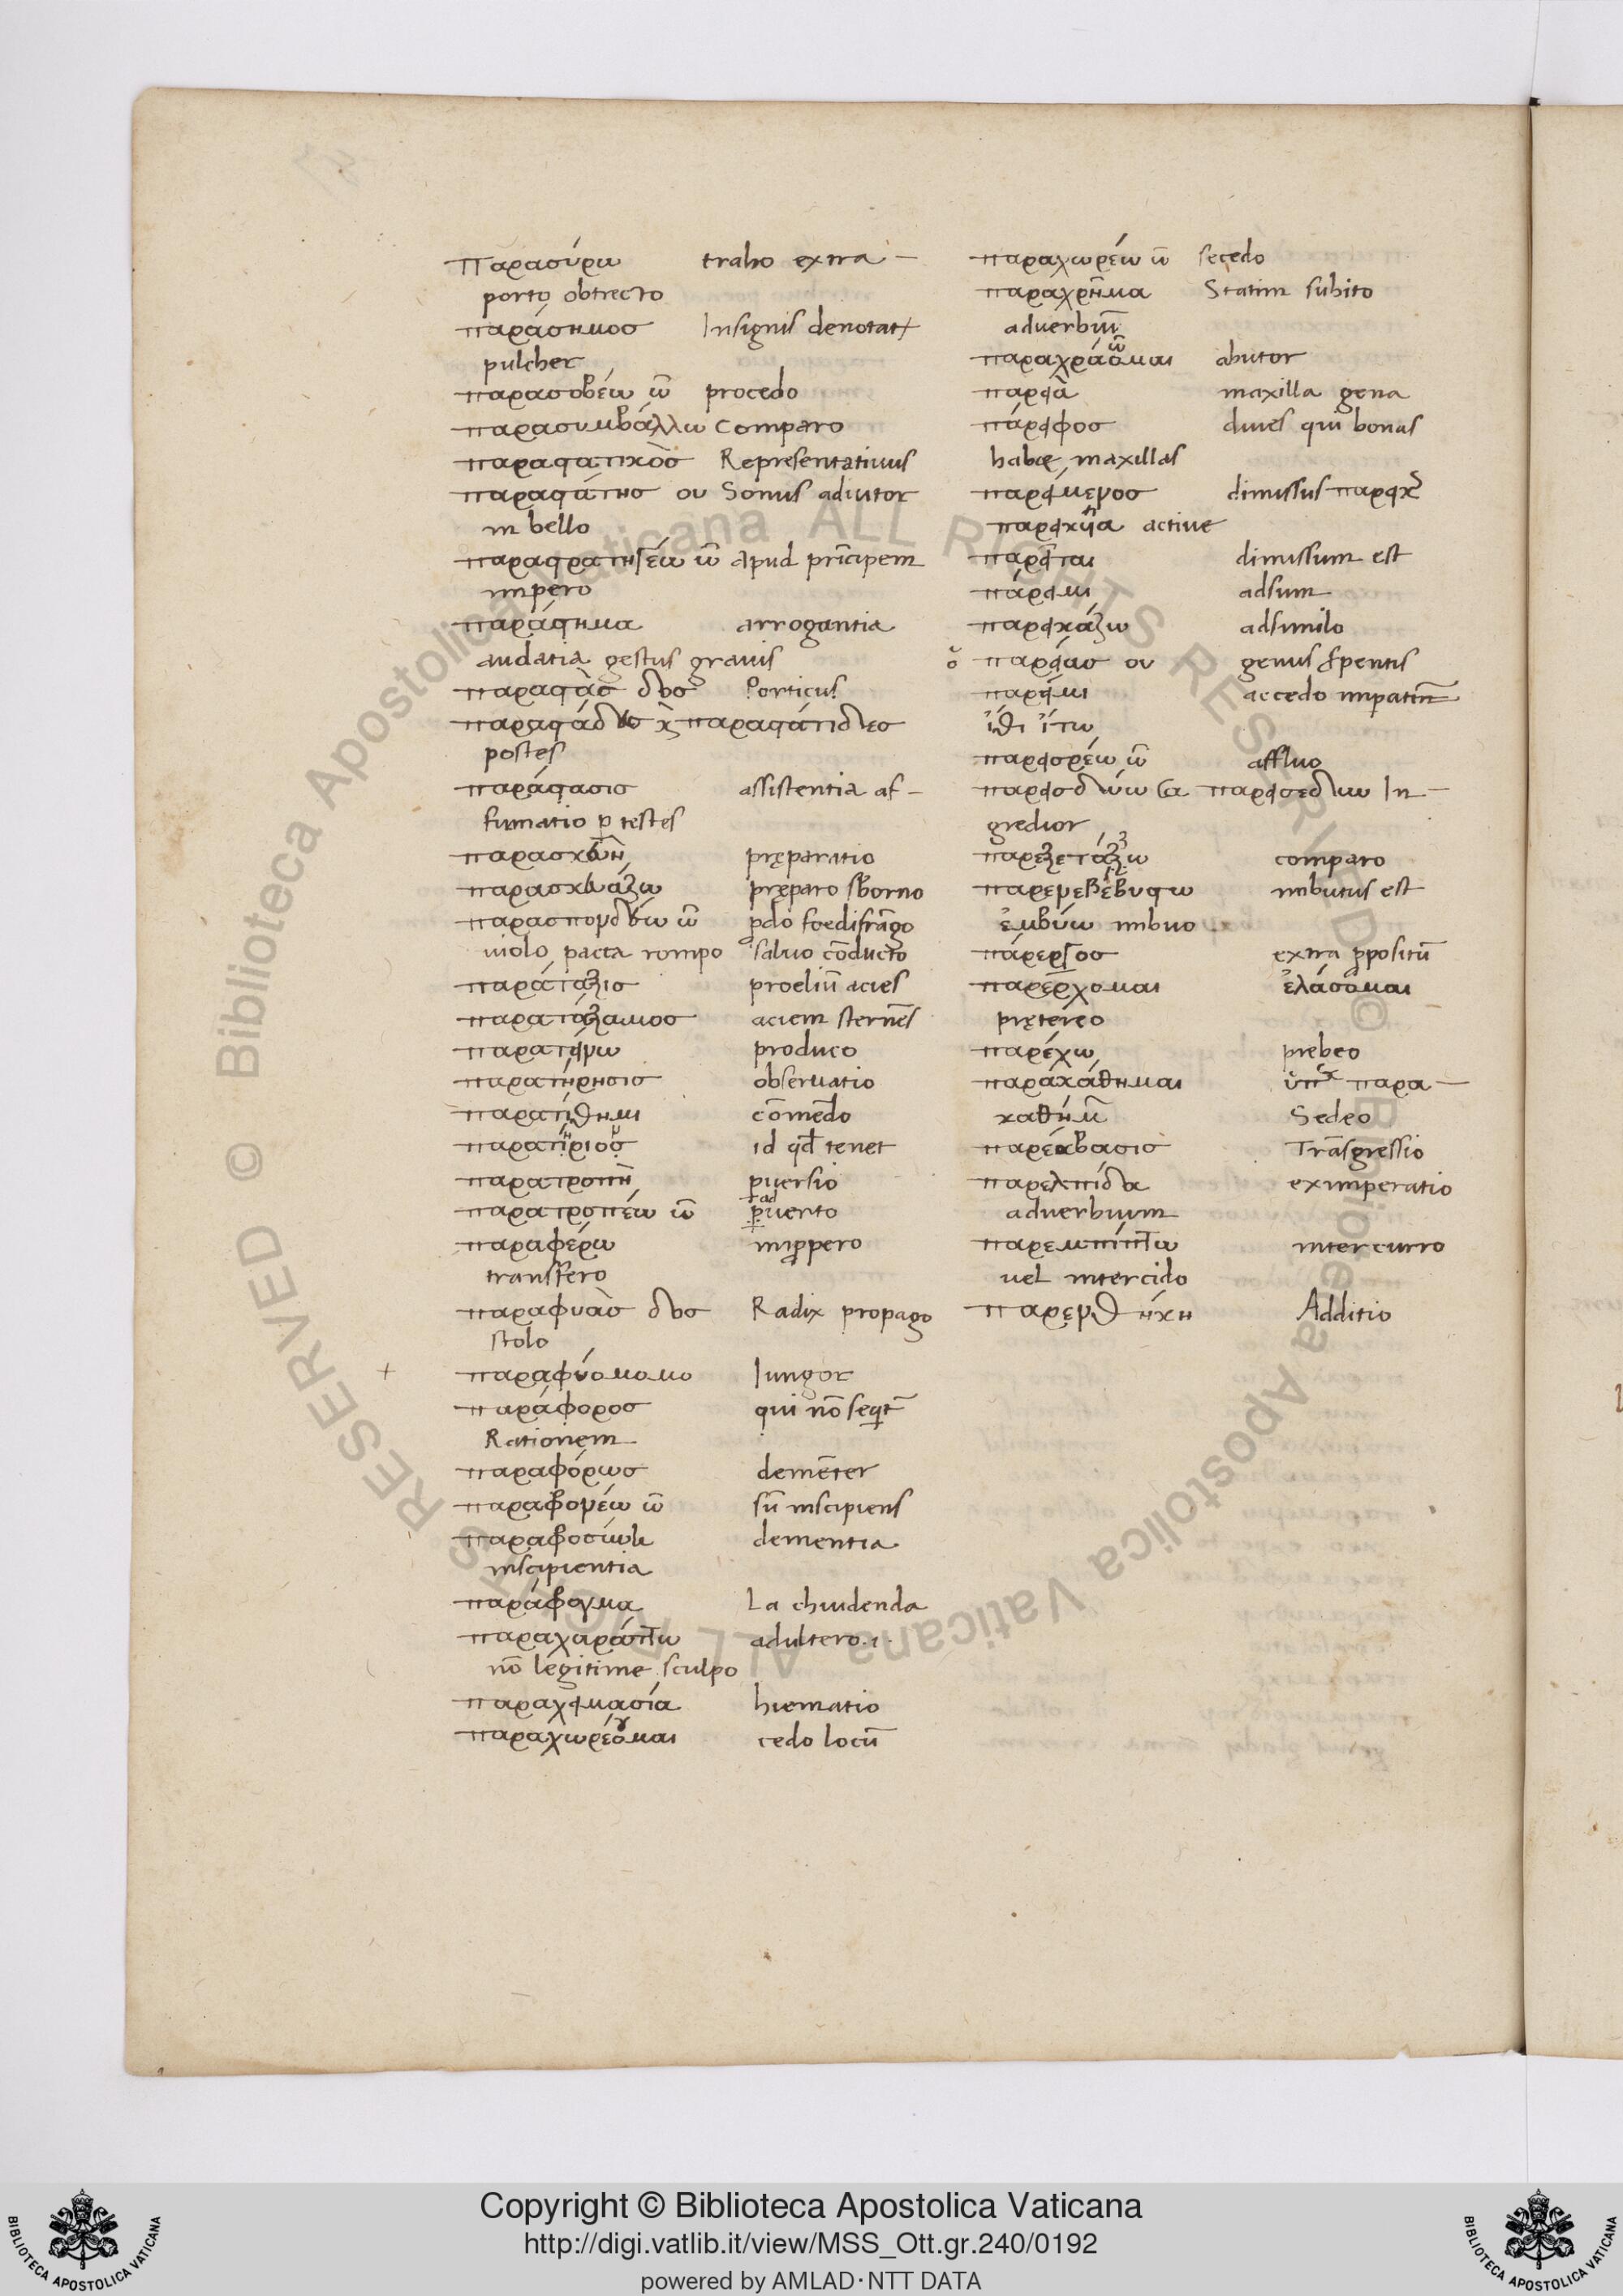 Παρασύρω traho extra –
porto obtrecto
παράσημος Insignis denotat
pulcher
παρασοβέω ῶ procedo
παρασυμβάλλω comparo
παραστατικὸς Representatiuus
παραστάτης ου Sonus adiutor
in bello
παραστρατηγέω ῶ apud prīcipem
impero
παράστημα arrogantia
audatia gestus grauis
παραστὰς δος Porticus
παραστάδες καὶ παραστάτιδες
postes
παράστασις assistentia af–
firmatio p testes
παρασκευὴ pręparatio
παρασκευάζω pręparo sborno
παρασπονδέω ῶ pdo foedifrāgo
uiolo pacta rompo saluo cōducto
παράταξις proeliū acies
παραταξάμος aciem sternēs
παρατείνω produco
παρατήρησις obseruatio
παρατίθημι cōmēdo
παρατήριος id qd tenet
παρατροπὴ puersio
παρατροπέω ῶ puerto
παραφέρω impropero
transfero
παραφυὰς δος Radix propago
stolo
παραφύομομο Iungor
παράφορος qui nō seqt
Rationem
παραφόρως demēter
παραφρονέω ῶ sū inscipiens
παραφροσύνη dementia
inscipientia
παράφραγμα La chiudenda
παραχαράττω adultero .i.
nō legitime sculpo
παραχειμασία hiematio
παραχωρέομαι cedo locū
παραχωρέω ῶ secedo
παραχρῆμα Statim subito
aduerbiū
παραχράομαι abutor
παρειὰ maxilla gena
πάρειφος diues qui bonas
habet maxillas
παρείμενος dimissus
παρεικῆα actiue
παρεῖται dimissum est
πάρειμι adsum
παρεικάζω adsimilo
παρείας ου genus serpentis
πάρειμι accedo
ἴθι ἴτω
παρεισρέω ῶ affluo
παρεισδύω καὶ παρεισεδύω In–
gredior
παρεξετάζω comparo
imbutus est
ἐμβύω imbuo
πάρεργος extra ppositū
παρέρχομαι ἐλάσομαι
pręterėo
παρέχω prebeo
παρακάθημαι παρα–
καθῆμ Sedeo
παρέκβασις Trāsgressio
παρελπίδα eximperatio
aduerbium
παρεμπίπτω intercurro
uel intercido
παρενθήκη Additio
Copyright © Biblioteca Apostolica Vaticana
http://digi.vatlib.it/view/MSS_Ott.gr.240/0192
powered by AMLAD·NTT DATA